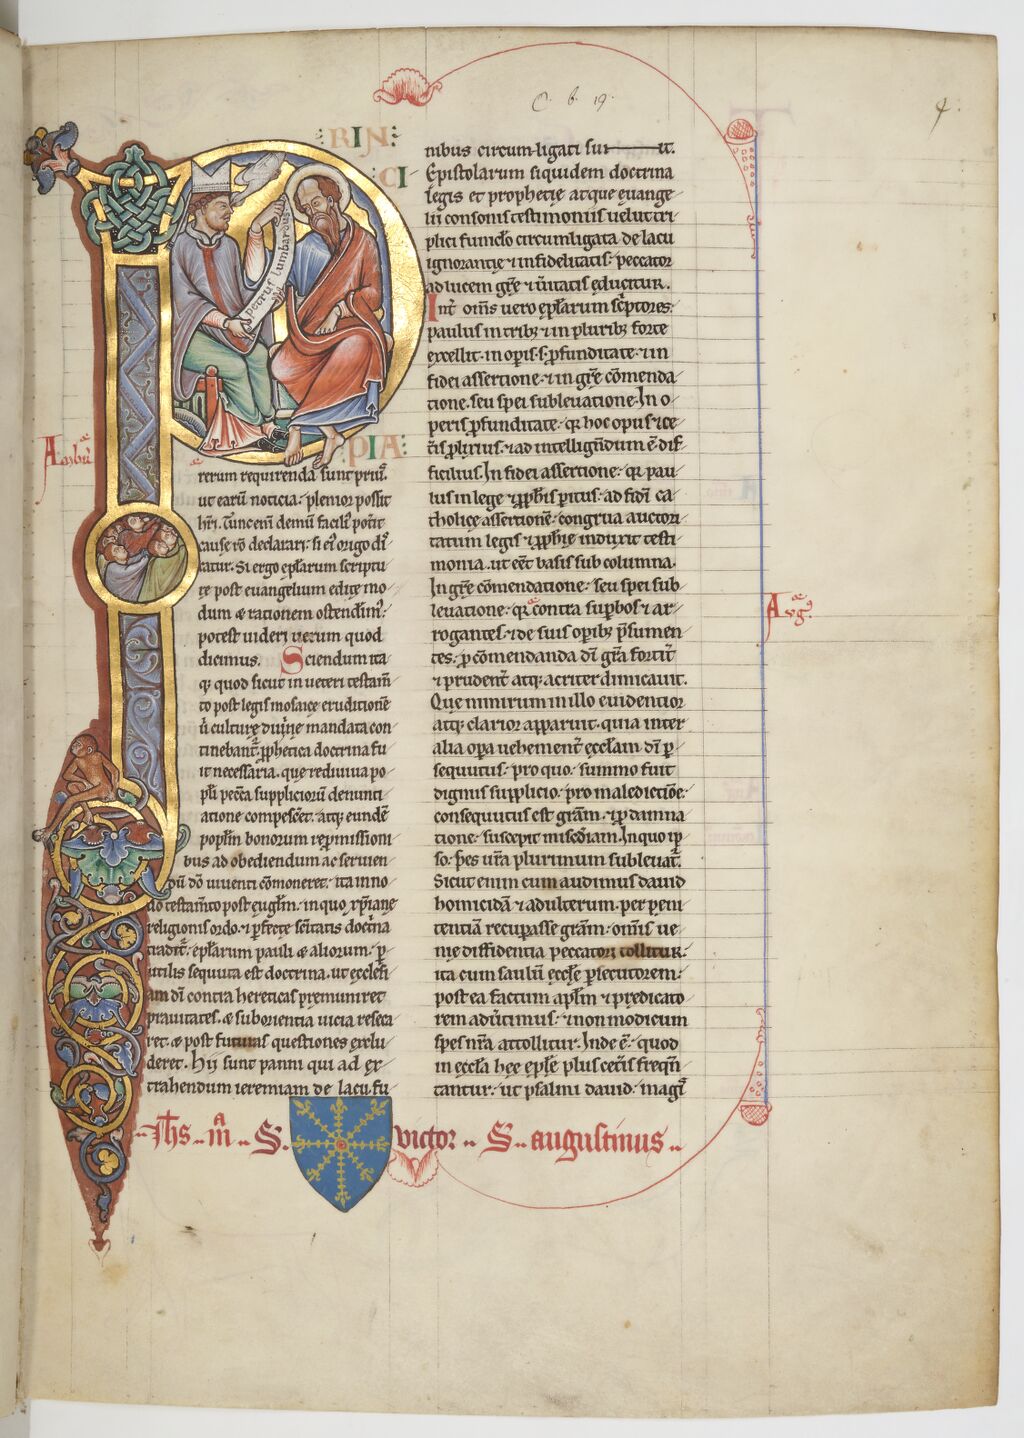 C. b. 19.
4.
PRIN
CI
PIA
Petrus lumbardus
Ambr̄
rerum requirenda sunt priꝰ.
ut earū noticia plenior possit
hr̄i. Tunc em̄ demū faciliꝰ pot̄it
cause rō declarari: si eiꝰ origo dī
catur. Si ergo epl̄arum scriptu
rę post evangelium edite mo
dum & rationem ostendim̄ꝰ:
potest uideri uerum quod
dicimus. Sciendum ita
qꝫ quod sicut in ueteri testam̄
to post legis mosaice eruditionē
ū culturę diuinę mandata con
tinebant̄ ꝓphetica doctrina fu
it necessaria. que rediuiua po
puli pecc̄a suppliciorū denunti
atione compesceret. atqꝫ eundē
popl̄m bonorum repromissioni
bus ad obediendum ac seruien
dū dō uiuenti cōmoneret: ita in no
uo testam̄to post eugl̄m. in quo xp̄iane
religionis ordo. & perfecte sc̄itatis doct̄na
tradit̄: epl̄arum pauli & aliorum ꝑ
utilis sequuta est doctrina. ut eccl̄esi
am dī contra hereticas premuniret
prauitates. & suborientia uicia reseca
ret. & post futuras questiones exclu
deret. Hij sunt panni qui ad ex
trahendum ieremiam de lacu. fu
nibus circumligati sunt.
Epistolarum siquidem doctrina
legis et prophetię atque euange
lii consonis testimoniis uelut tri
plici funiclo circumligata de lacu
ignorantię & infidelitatis: peccator
ad lucem gr̄e & ūitatis educitur.
Int̄ om̄s uero epl̄arum sc̄ptores:
paulus in tribꝫ & in pluribꝫ forte
excellit. in opis .s. ꝓfunditate. & in
fidei assertione. & in gr̄e cōmenda
tione. seu spei subleuatione. In o
peris ꝓfunditate. qꝛ hoc opus ce
t̄is ꝓlixius. & ad intelligēdum ē dif
ficilius. In fidei assertione. qꝛ pau
lus in lege & ꝓph̄is pitus: ad fidī ca
tholice assertionē. congrua auctori
tatum legis & ꝓph̄ię induxit testi
monia. ut eēt basis sub columna.
In gr̄e cōmendatione. seu spei sub
leuatione. qꝛ contra suꝑbos & ar
rogantes. & de suis operibꝫ p̄sumen
tes: ꝓ cōmendanda dī gr̄a fortit̄
& prudent̄ atqꝫ acriter dimicauit.
Que nimirum in illo euidentior
atqꝫ clarior apparuit. quia inter
alia opa uehement̄ eccl̄am dī ꝑ
sequutus: pro quo summo fuit
dignus supplicio. pro maledictiōe
consequutus est grām. & ꝓ damna
tione suscepit misc̄diam. In quo ip
so: spes nr̄a plurimum subleuat̄.
Sicut enim cum audimus dauid
homicidā & adulterum. per peni
tentiā recupasse grām. om̄is ue
nię diffidentia peccatorꝫ tollitur:
ita cum saulū eccl̄ie ꝑsecutorem:
postea factum apl̄m & predicato
rem aduertimus: & non modicum
spes nr̄a attollitur. Inde ē. quod
in eccl̄a hee epl̄e plus cet̄is freqn̄
tantur: ut psalmi dauid. magꝭ
Aug̔.
Ihs – mᵃ – S. victor – S – augustinus –